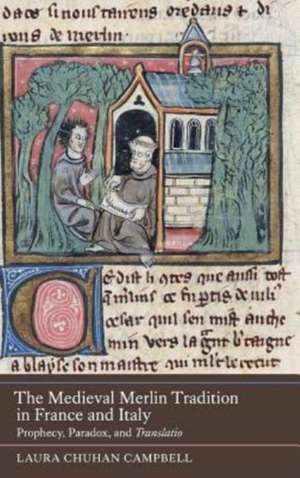 da ce si nous tairons ore daus et di
rons de merlin.
Ce dist li qtes que aussi tost
que mlins se fu ptis de iuli
cesar quil son mist au che
min vers la gnt btaigne
a blayse son maistre qui mlt le recut
The Medieval Merlin Tradition
in France and Italy
Prophecy, Paradox, and Translatio
LAURA CHUHAN CAMPBELL